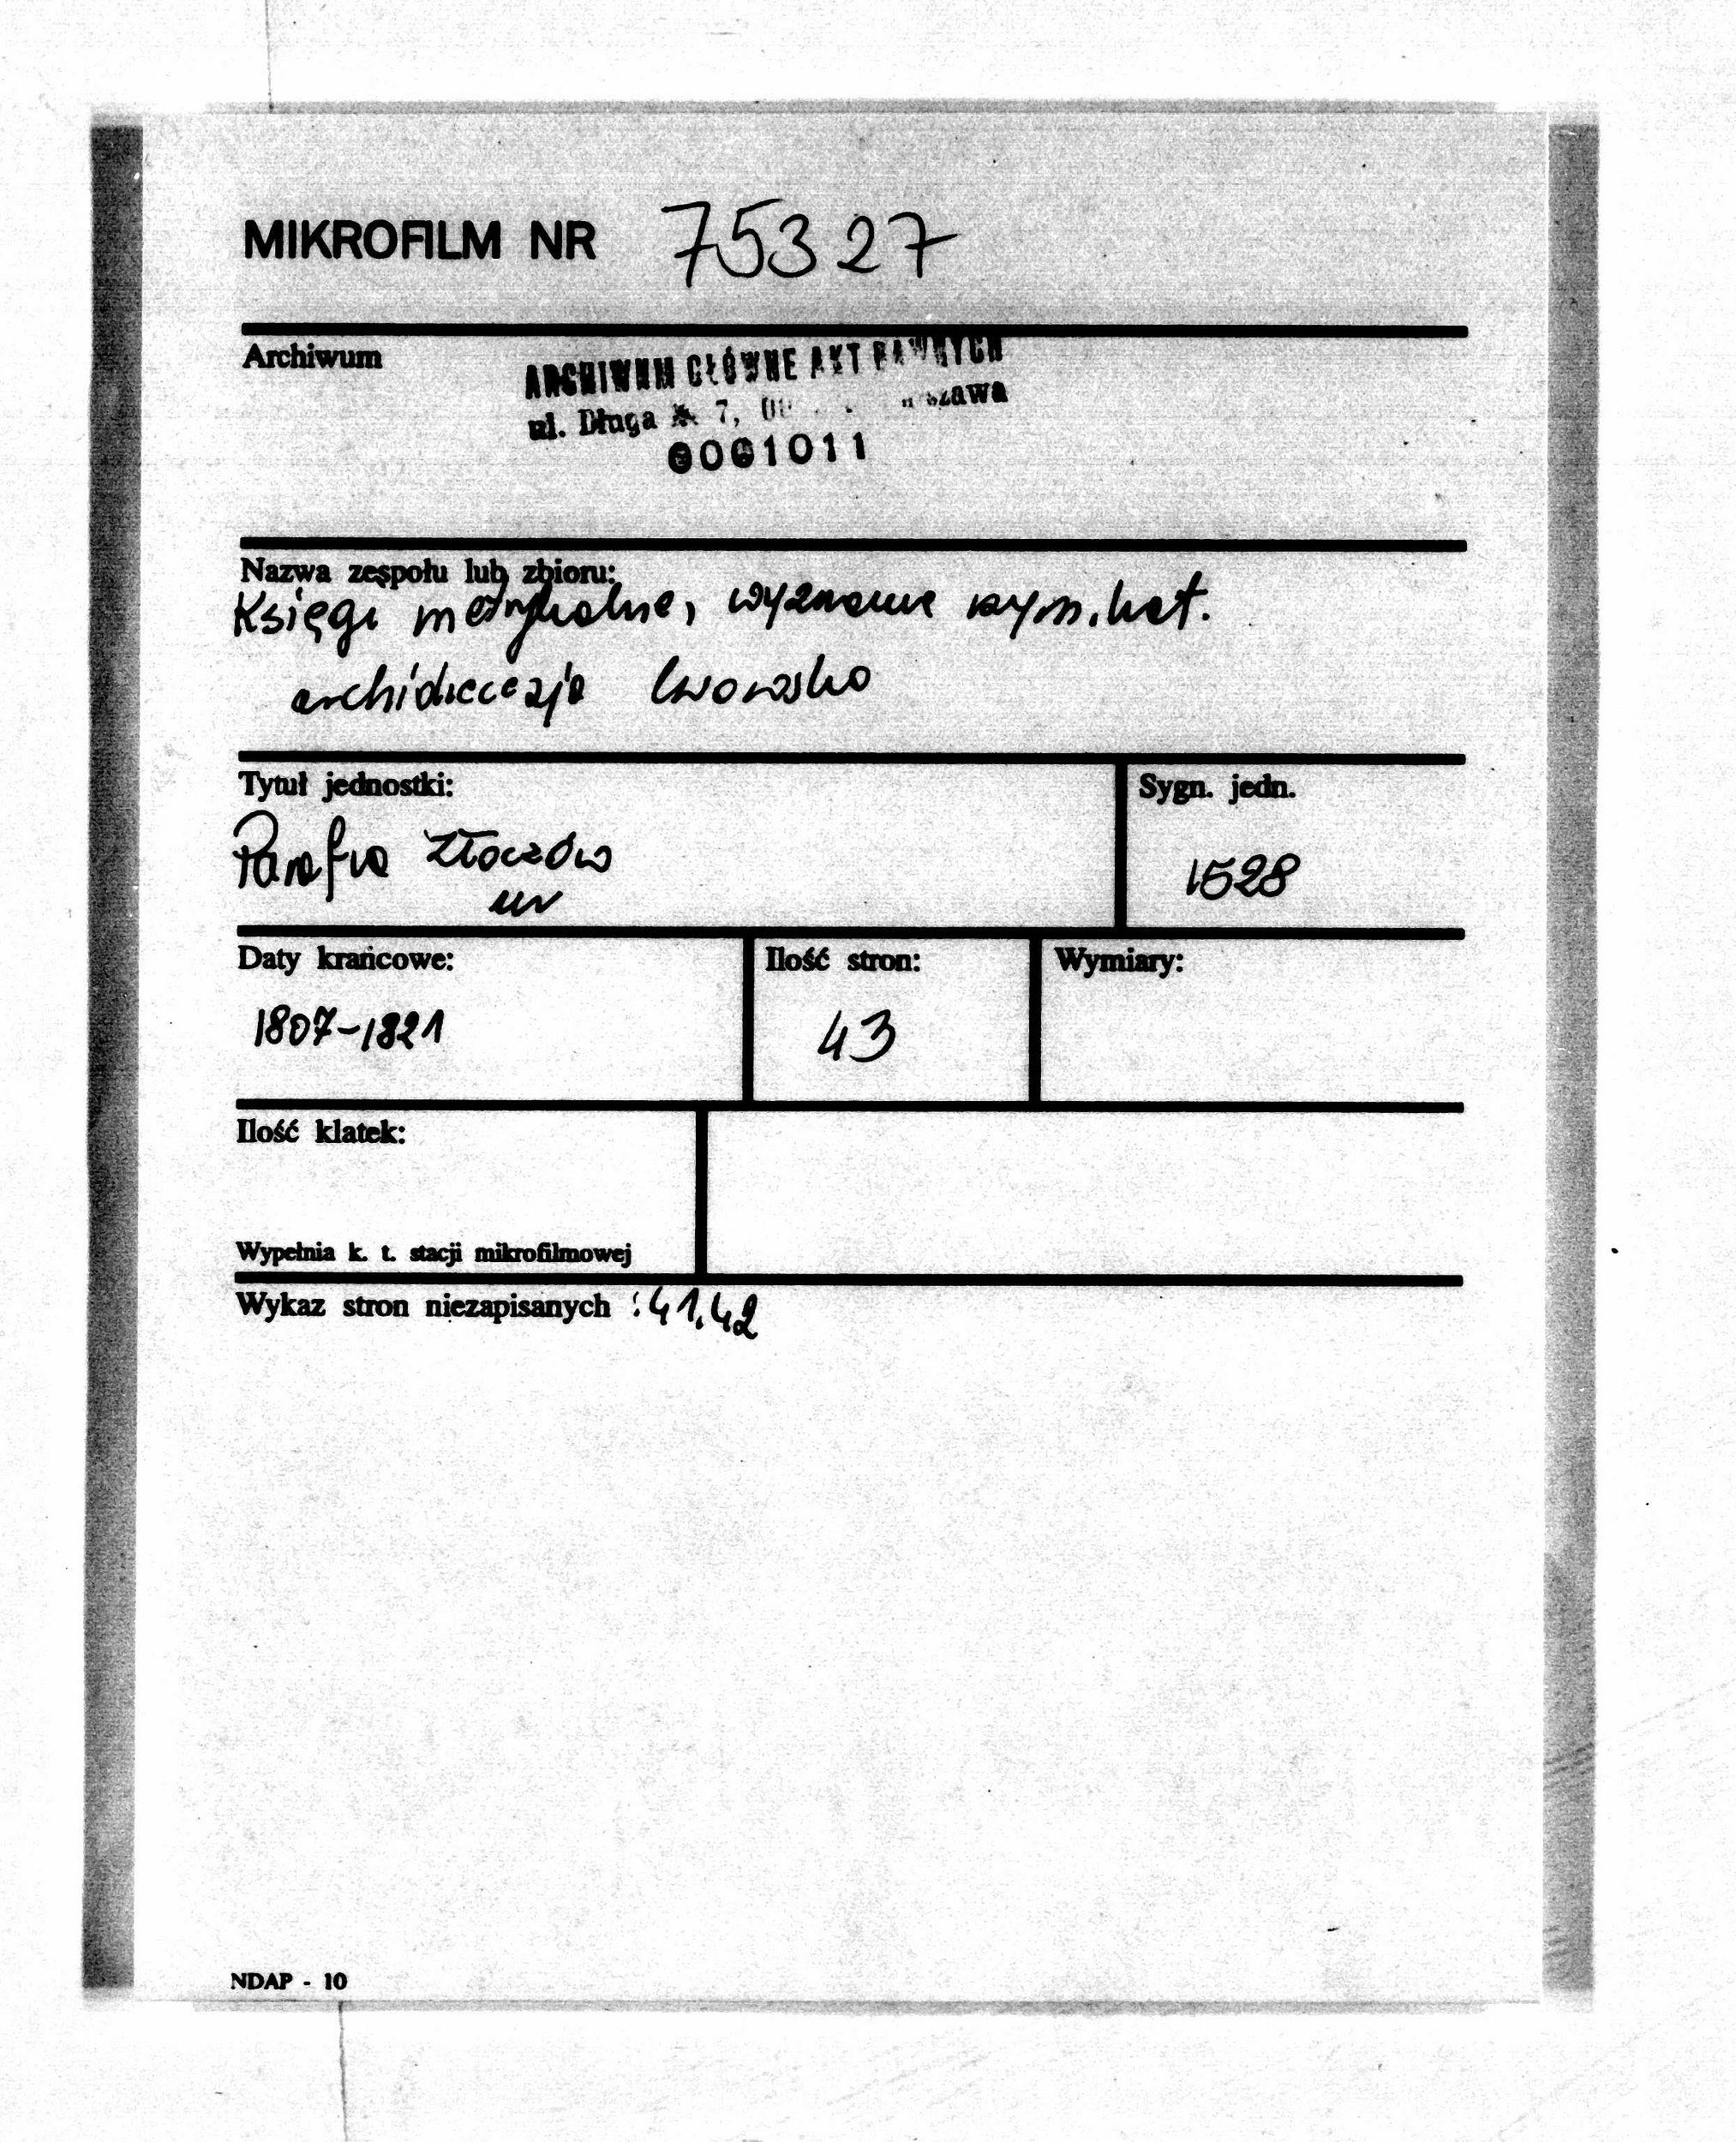 MIKROFILM NR 75327
Archiwum
ARCHIWUM GŁÓWNE AKT DAWNYCH
ul. Długa 7, Warszawa
0001011
Nazwa zespołu lub zbioru:
Księgi metrykalne, wyznanie rzym. kat.
archidiecezja lwowska
Tytuł jednostki:
Sygn. jedn.
Parafia Złoczów
1528
ur
Daty krańcowe:
Ilość stron:
Wymiary:
1807-1821
43
Ilość klatek:
Wypełnia k. t. stacji mikrofilmowej
Wykaz stron niezapisanych : 41, 42
NDAP - 10